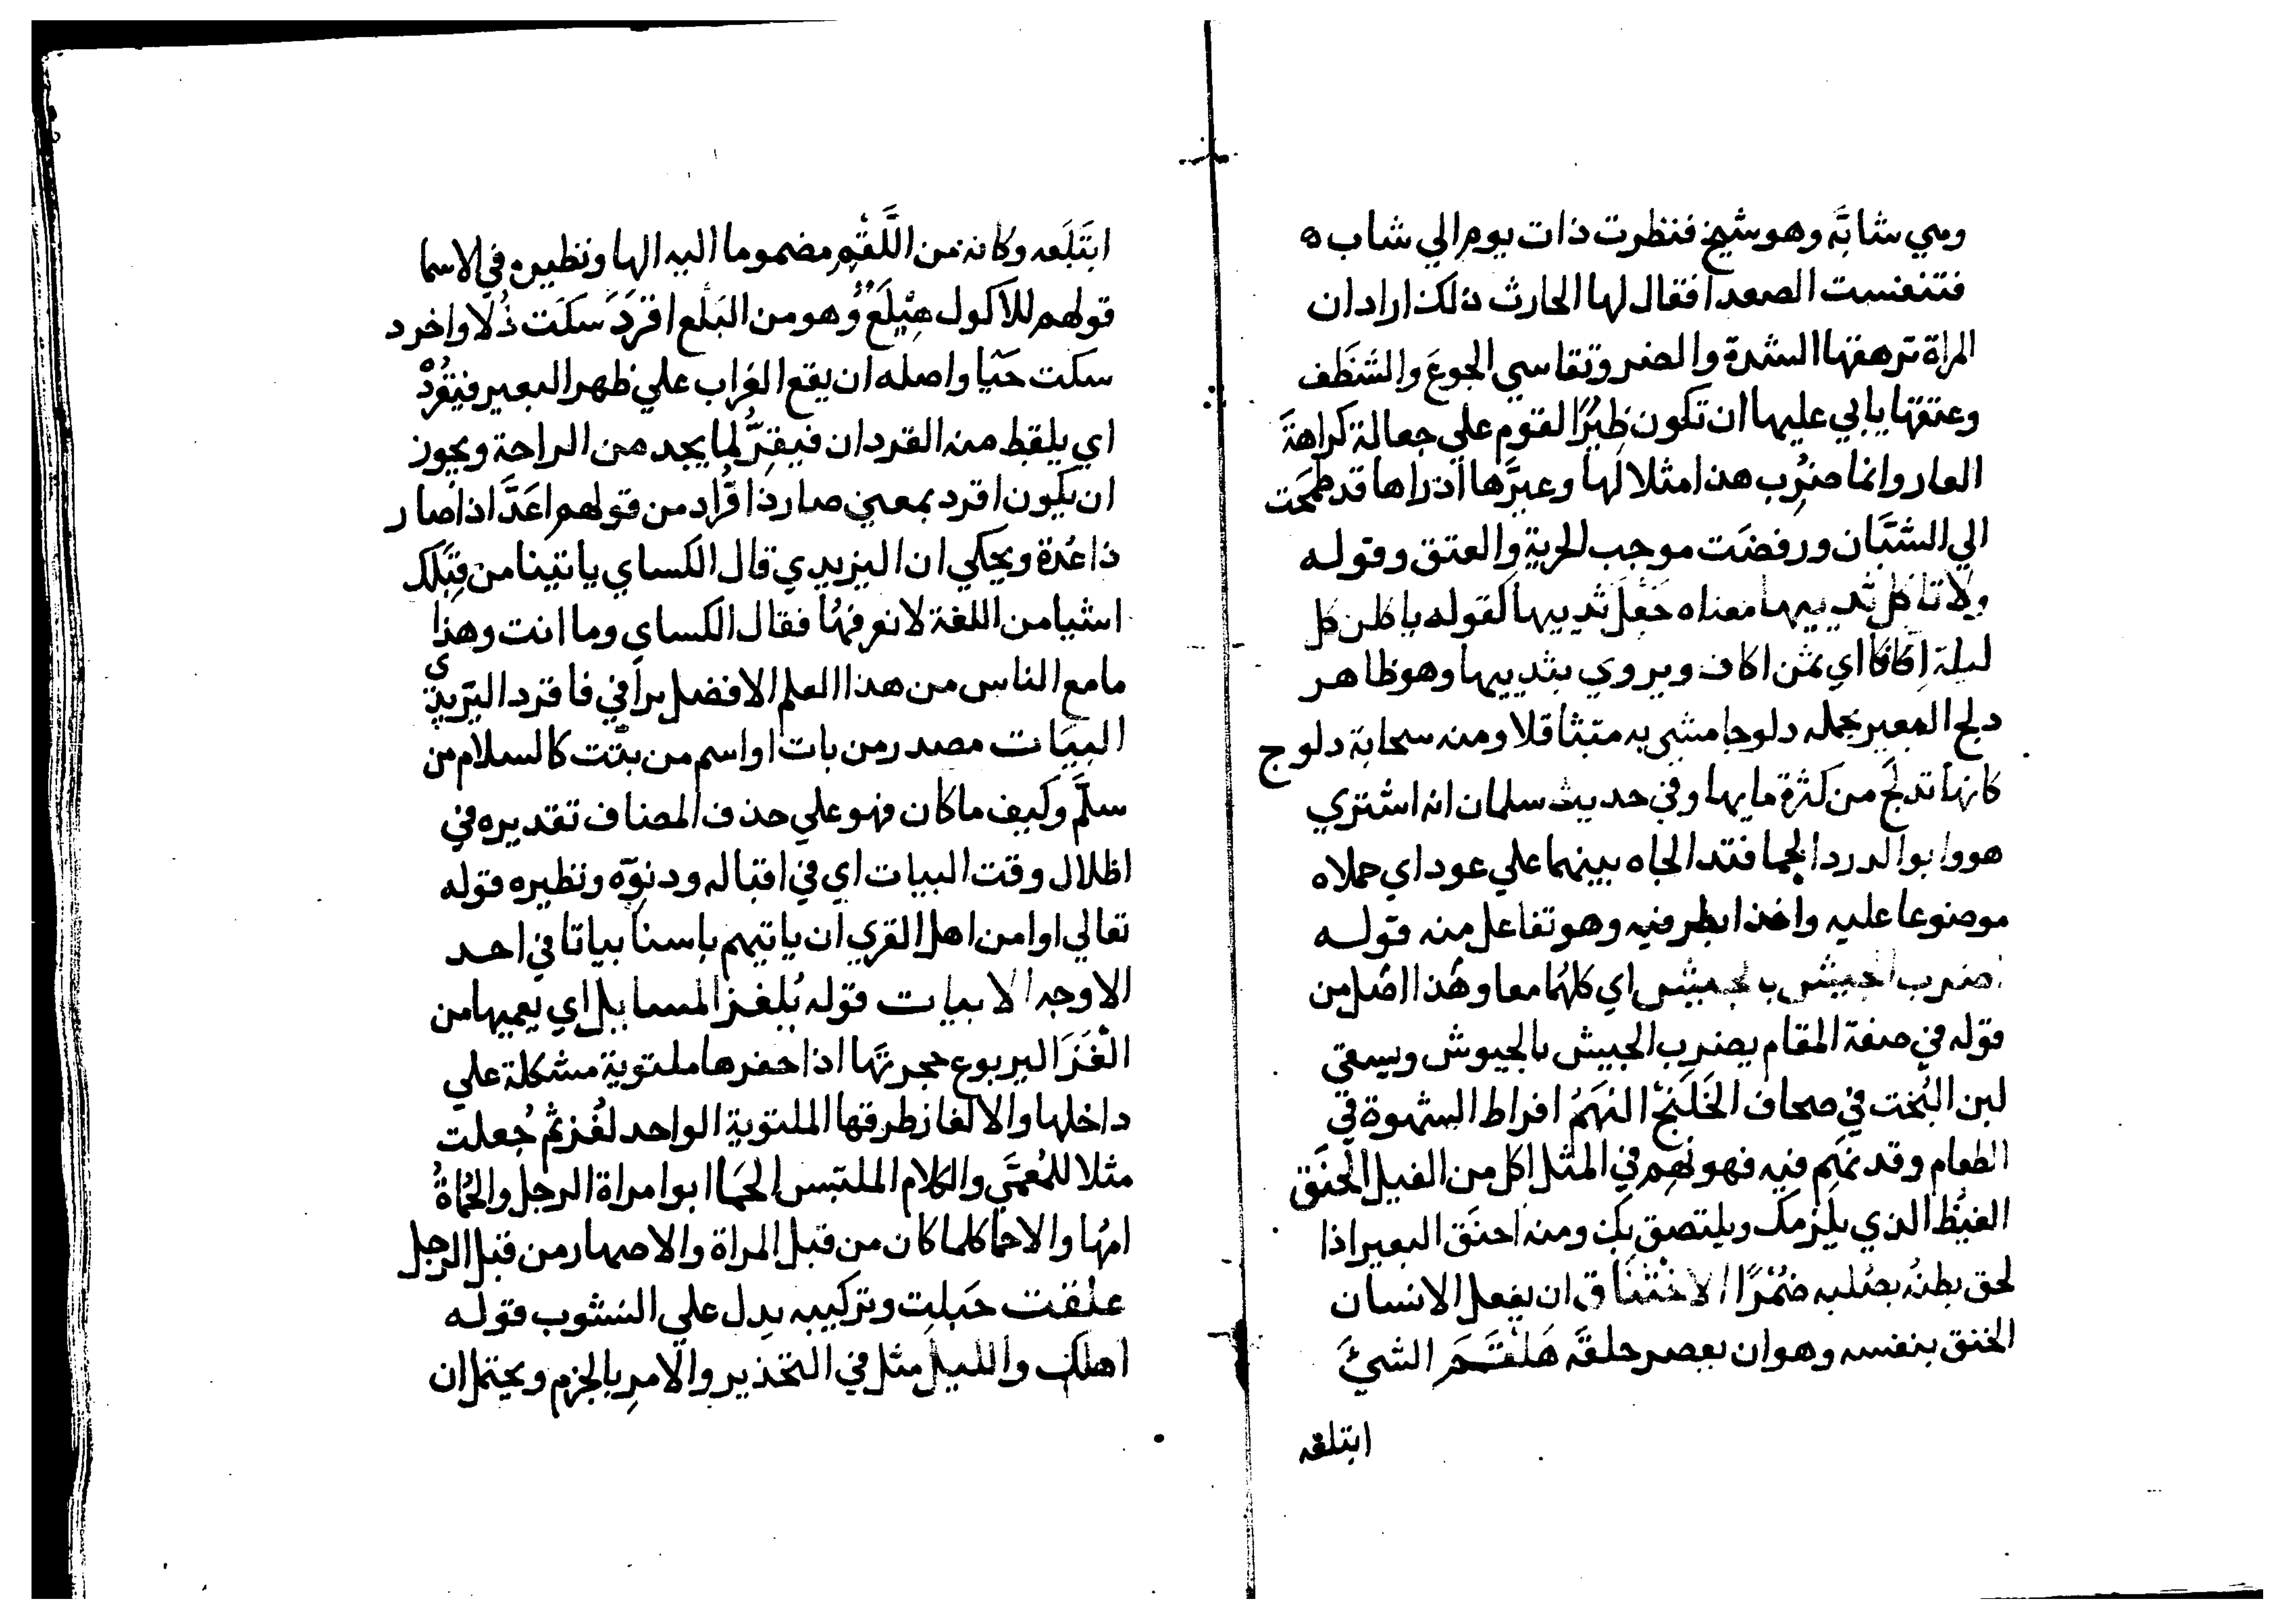 وهي شابَّة وهو شيخ فنظرت ذات يوم الي شاب ه
فتنفست الصعدا فقال لها الحارث ذلك اراد ان
المراة ترهقها الشدة والضر وتقاسي الجوعَ والشَّظَف
وعتقها يابي عليها ان تكون ظِيرًا لقوم علي جعالة كراهةَ
العار وانما ضُرِب هذا مثلا لها وعيَّرها اذ راها قد طمحَت
الي الشبَّان ورفضَت موجب الحرية والعتق وقوله
ولا تاكل ثدييها معناه جَعْلَ ثدييها كقوله ياكلن كل
ليلة اِكافا اي ثمن اكاف ويروي بثدييها وهو ظاهر
دلج البعير بحمله دلوجا مشي به متثاقلا ومنه سحابة دلوج
كانها تدلج من كثرة مايها وفي حديث سلمان انه اشتري
هو وابو الدرد الحما فتدالجاه بينهما علي عود اي حملاه
موضوعا عليه واخذا بطرفيه وهو تفاعل منه قوله
اضرب الجيش بالجيش اي كلهُما معا وهذا اصْل من
قوله في صفة المقام يضرب الجيش بالجيوش ويسقي
لبن البُخت في صحاف الخَلَنْج النهَمُ افراط الشهوة في
الطعام وقد نَهِم فيه فهو نَهِم في المثل اكل من الفيل الحنَق
الغيظ الذي يلزمك ويلتصق بك ومنه احنَق البعير اذا
لحق بطنُه بصُلبه ضُمْرًا الاخْتنَاق ان يفعل الانسان
الخنق بنفسه وهو ان يعصر حلقَه هَلْقَمَ الشيَ
ابتلعه
ابتَلَعه وكانه من اللَّقْمِ مضموما اليه الها ونظيره في الاسما
قولهم للاكول هِبْلَعٌ وهو من البَلْع اقرَدَ سكَت ذُلا واخرد
سكت حيَا واصله ان يقع الغراب علي ظهر البعير فيُقرِّدْ
اي يلقط منه القردان فيقِرُّ لما يجد من الراحة ويجوز
ان يكون اقرد بمعني صار ذا قُراد من قولهم اغَدَّ اذا صار
ذا غُدة ويحكي ان اليزيدي قال الكساي ياتينا من قِبَلك
اشيا من اللغة لا نعرفهُا فقال الكساي وما انت وهذا
ما مع الناس من هذا العلم الا فضل بزاقي فاقرد اليزيدي
البيَات مصدر من بات او اسم من بيّت كالسلام من
سلَّم وكيف ما كان فهو علي حذف المضاف تقديره في
اظلال وقت البيات اي في اقباله ودنوّه ونظيره قوله
تعالي اوامن اهل القري ان ياتيهم باسنا بياتا في احد
الاوجه الابيات قوله يُلغز المسايل اي يعميها من
الْغَزَ اليربوع حجرتَها اذا حفرها ملتوية مشكلة علي
داخلها والالغاز طرقها الملتوية الواحد لُغُز ثم جُعلت
مثلا للمُعمَّي والكلام الملتبس الحَما ابو امراة الرجل والحَماةُ
امهُا والاحما كلما كان من قبل المراة والاصهار من قبل الرجل
علقت حَبلت وتركيبه يدل علي النشوب قوله
اهلك والليلَ مثل في التحذير والامرِ بالجزم ويحتمل ان